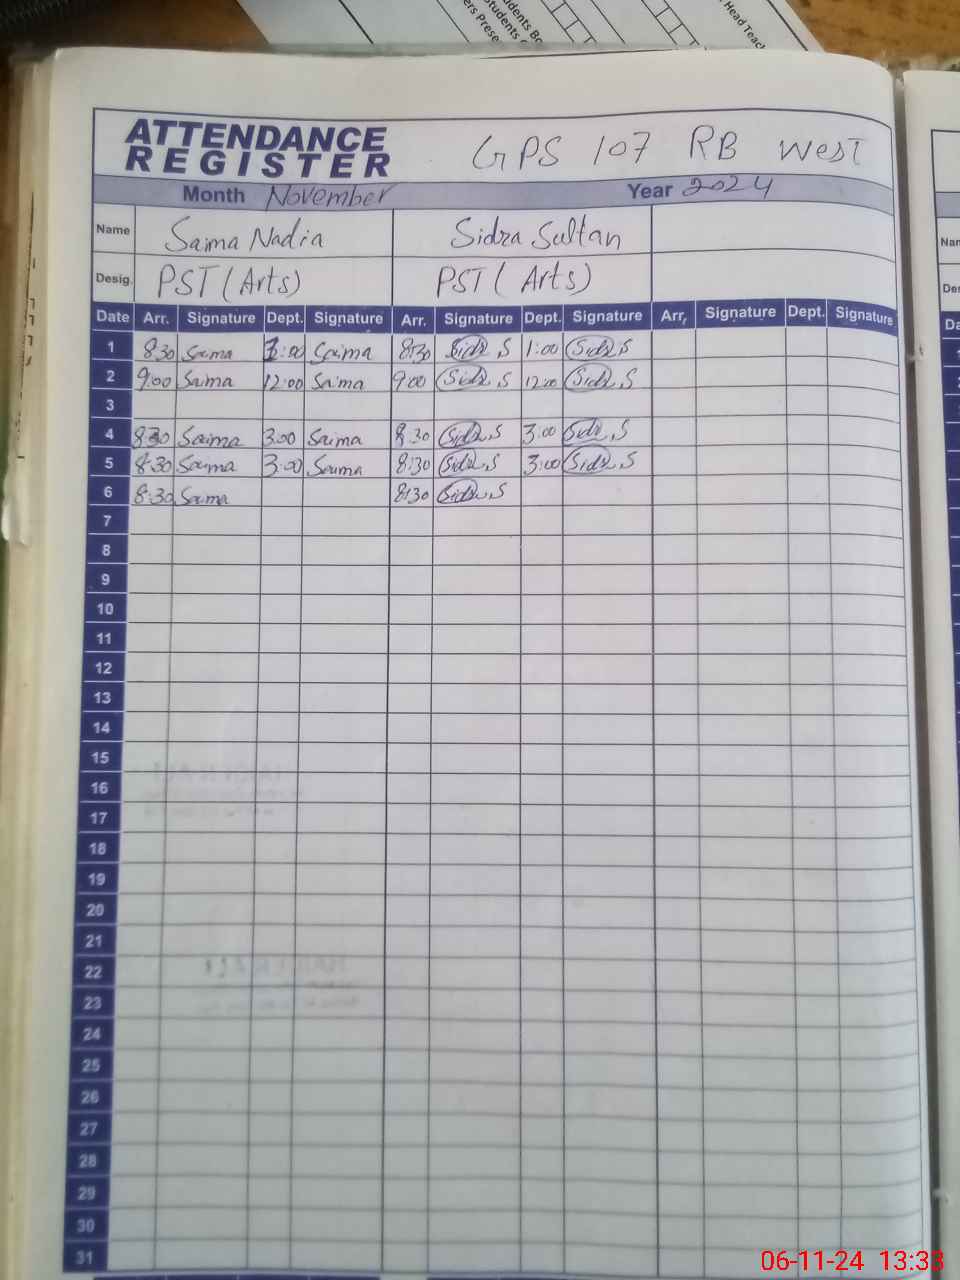 Head Teac
Students Bo
Students
ers Prese
ATTENDANCE
REGISTER
GPS 107 RB West
Month November Year 2024
Name Saima Nadia Sidra Sultan
Desig. PST (Arts) PST (Arts)
Date Arr. Signature Dept. Signature Arr. Signature Dept. Signature Arr. Signature Dept. Signature
1 8:30 Saima :00 Saima 8:30 Sidr S 1:00 Sidr S
2 9:00 Saima 12:00 Saima 9:00 Sidr S 12:00 Sidr S
3
4 8:30 Saima 3:00 Saima 8:30 Sidr S 3:00 Sidr S
5 8:30 Saima 3:00 Saima 8:30 Sidr S 3:00 Sidr S
6 8:30 Saima 8:30 Sidr S
7
8
9
10
11
12
13
14
15
16
17
18
19
20
21
22
23
24
25
26
27
28
29
30
31
06-11-24 13:33